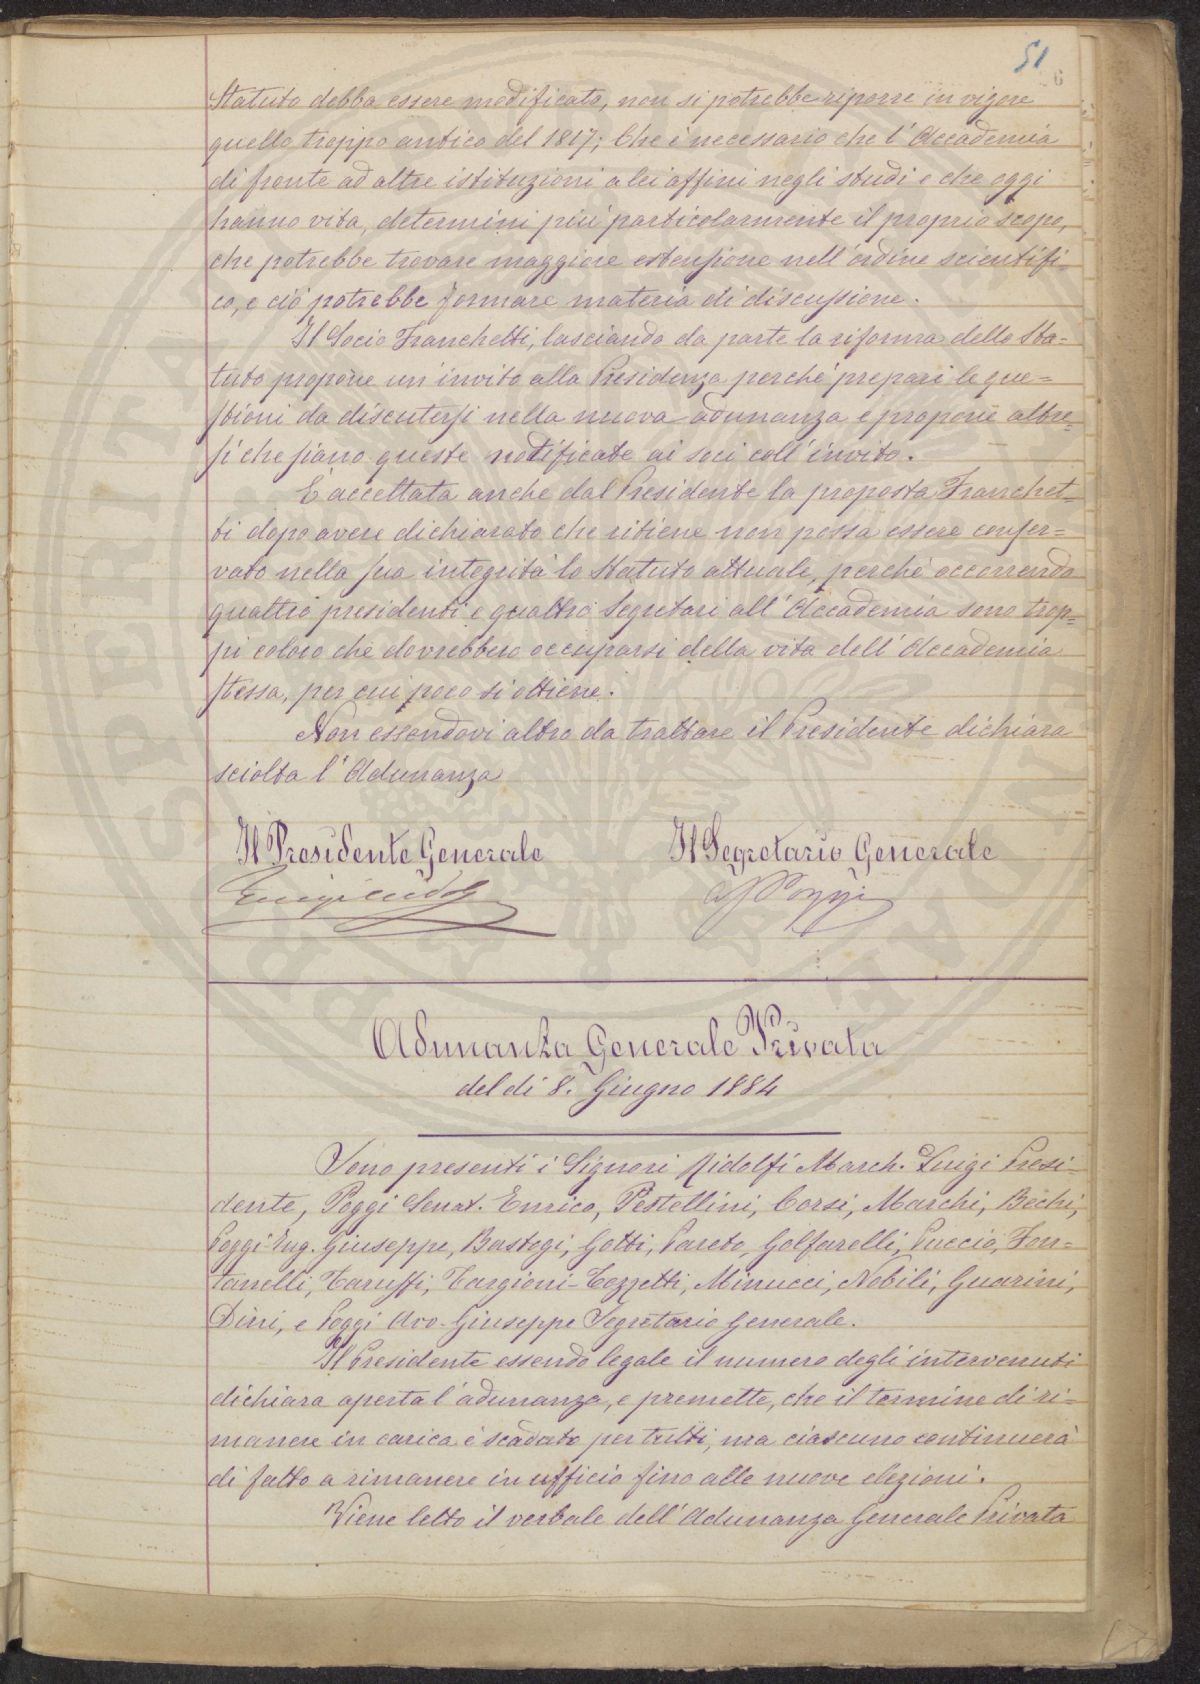 51
Statuto debba essere modificato, non si potrebbe riporre in vigore
quello troppo antico del 1817; Che è necessario che l'Accademia
di fronte ad altre istituzioni a lei affini negli studi e che oggi
hanno vita, determini più particolarmente il proprio scopo,
che potrebbe trovare maggiore estensione nell'ordine scientifi-
co, e ciò potrebbe formare materia di discussione.
Il Socio Franchetti, lasciando da parte la riforma dello Sta-
tuto propone un'invito alla Presidenza perchè prepari le que=
stioni da discutersi nella nuova adunanza e propone altre=
sì che siano queste notificate ai soci coll'invito.
È accettata anche dal Presidente la proposta Franchet-
ti dopo avere dichiarato che ritiene non possa essere conser=
vato nella sua integrità lo Statuto attuale, perchè occorrendo
quattro presidenti e quattro Segretari all'Accademia sono trop=
pi coloro che dovrebbero occuparsi della vita dell'Accademia
stessa, per cui poco si ottiene.
Non essendovi altro da trattare il Presidente dichiara
sciolta l'Adunanza
Il Presidente Generale Il Segretario Generale
Luigi Ridolfi GPoggi
Adunanza Generale Privata
del dì 8. Giugno 1884
Sono presenti i Signori Ridolfi March. Luigi Presi-
dente, Poggi Senat. Enrico, Pestellini, Corsi, Marchi, Bechi,
Poggi Ing. Giuseppe, Bastogi, Gotti, Pareto, Golfarelli, Puccio, Fon=
tanelli, Taruffi, Targioni-Tozzetti, Minucci, Nobili, Guarini,
Dini, e Poggi Avv. Giuseppe Segretario Generale.
Il Presidente essendo legale il numero degli intervenuti
dichiara aperta l'adunanza, e premette, che il termine di ri-
manere in carica è scaduto per tutti, ma ciascuno continuerà
di fatto a rimanere in ufficio fino alle nuove elezioni.
Viene letto il verbale dell'Adunanza Generale Privata